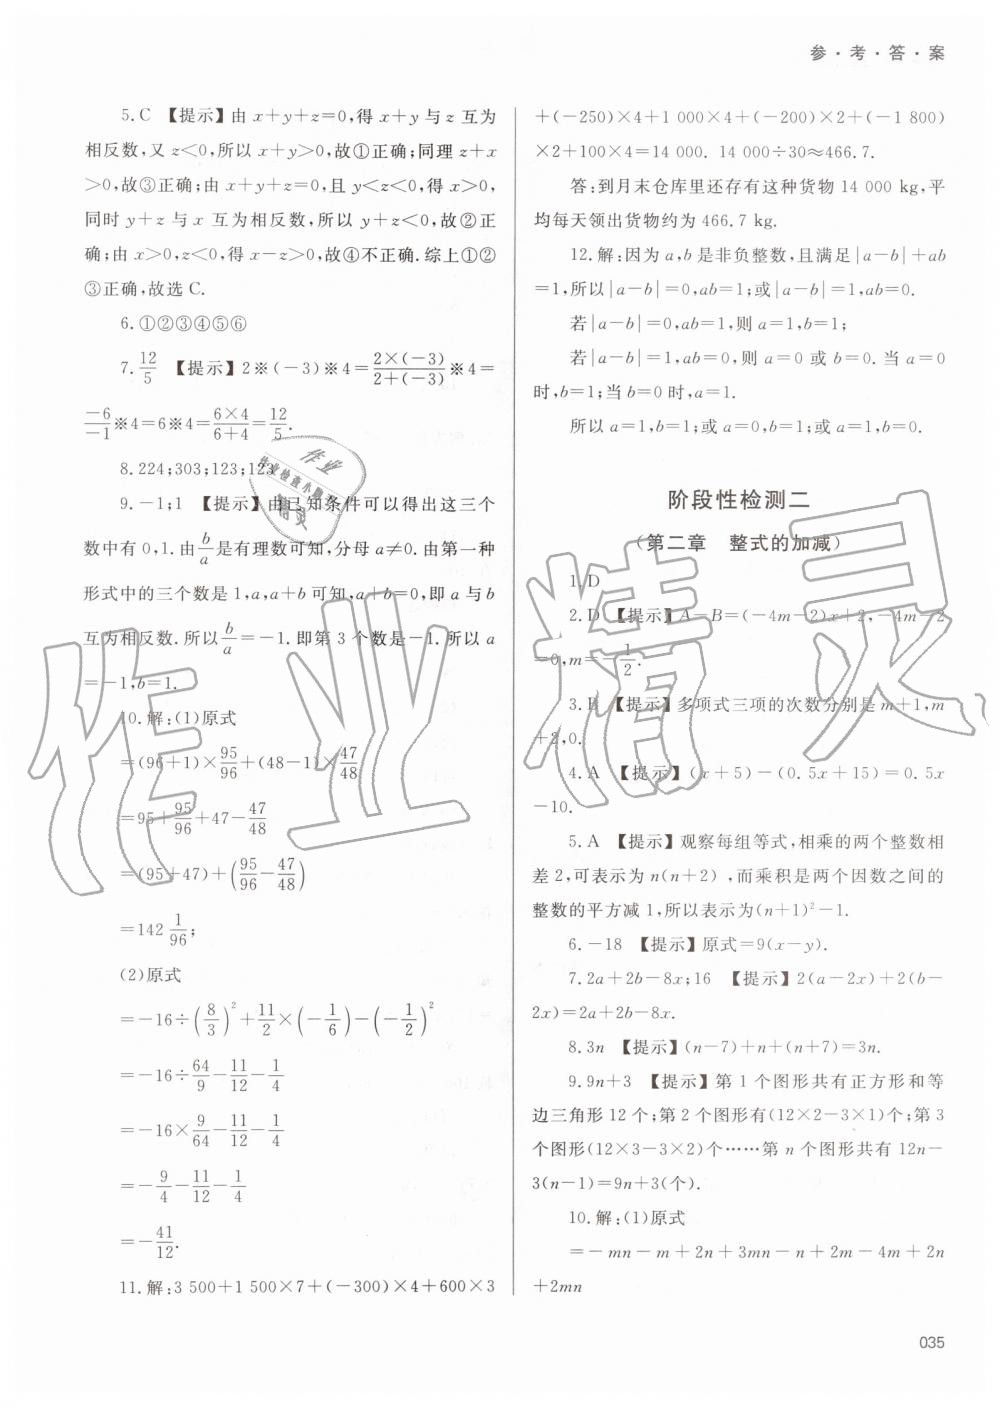 参·考·答·案
5.C 【提示】由 x+y+z=0,得 x+y 与 z 互为
相反数,又 z<0,所以 x+y>0,故①正确;同理 z+x
>0,故③正确;由 x+y+z=0,且 y<z<0,得 x>0,
同时 y+z 与 x 互为相反数,所以 y+z<0,故②正
确;由 x>0,z<0,得 x-z>0,故④不正确.综上①②
③正确,故选 C.
6.①②③④⑤⑥
7.12/5 【提示】2※(-3)※4=2×(-3)/2+(-3)※4=
-6/-1※4=6※4=6×4/6+4=12/5.
8.224;303;123;123
9.-1;1 【提示】由已知条件可以得出这三个
数中有 0,1.由b/a是有理数可知,分母 a≠0.由第一种
形式中的三个数是 1,a,a+b 可知,a+b=0,即 a 与 b
互为相反数.所以b/a=-1.即第 3 个数是-1.所以 a
=-1,b=1.
10.解:(1)原式
=(96+1)×95/96+(48-1)×47/48
=95+95/96+47-47/48
=(95+47)+(95/96-47/48)
=142 1/96;
(2)原式
=-16÷(8/3)²+11/2×(-1/6)-(-1/2)²
=-16÷64/9-11/12-1/4
=-16×9/64-11/12-1/4
=-9/4-11/12-1/4
=-41/12.
11.解:3 500+1 500×7+(-300)×4+600×3
+(-250)×4+1 000×4+(-200)×2+(-1 800)
×2+100×4=14 000. 14 000÷30≈466.7.
答:到月末仓库里还存有这种货物 14 000 kg,平
均每天领出货物约为 466.7 kg.
12.解:因为 a,b 是非负整数,且满足|a-b|+ab
=1,所以|a-b|=0,ab=1;或|a-b|=1,ab=0.
若|a-b|=0,ab=1,则 a=1,b=1;
若|a-b|=1,ab=0,则 a=0 或 b=0. 当 a=0
时,b=1;当 b=0 时,a=1.
所以 a=1,b=1;或 a=0,b=1;或 a=1,b=0.
阶段性检测二
(第二章 整式的加减)
1.D
2.D 【提示】A-B=(-4m-2)x+2,-4m-2
=0,m=-1/2.
3.B 【提示】多项式三项的次数分别是 m+1,m
+2,0.
4.A 【提示】(x+5)-(0.5x+15)=0.5x
-10.
5.A 【提示】观察每组等式,相乘的两个整数相
差 2,可表示为 n(n+2) ,而乘积是两个因数之间的
整数的平方减 1,所以表示为(n+1)²-1.
6.-18 【提示】原式=9(x-y).
7.2a+2b-8x;16 【提示】2(a-2x)+2(b-
2x)=2a+2b-8x.
8.3n 【提示】(n-7)+n+(n+7)=3n.
9.9n+3 【提示】第 1 个图形共有正方形和等
边三角形 12 个;第 2 个图形有(12×2-3×1)个;第 3
个图形(12×3-3×2)个……第 n 个图形共有 12n-
3(n-1)=9n+3(个).
10.解:(1)原式
=-mn-m+2n+3mn-n+2m-4m+2n
+2mn
035
作业精灵
作业
作业检查小